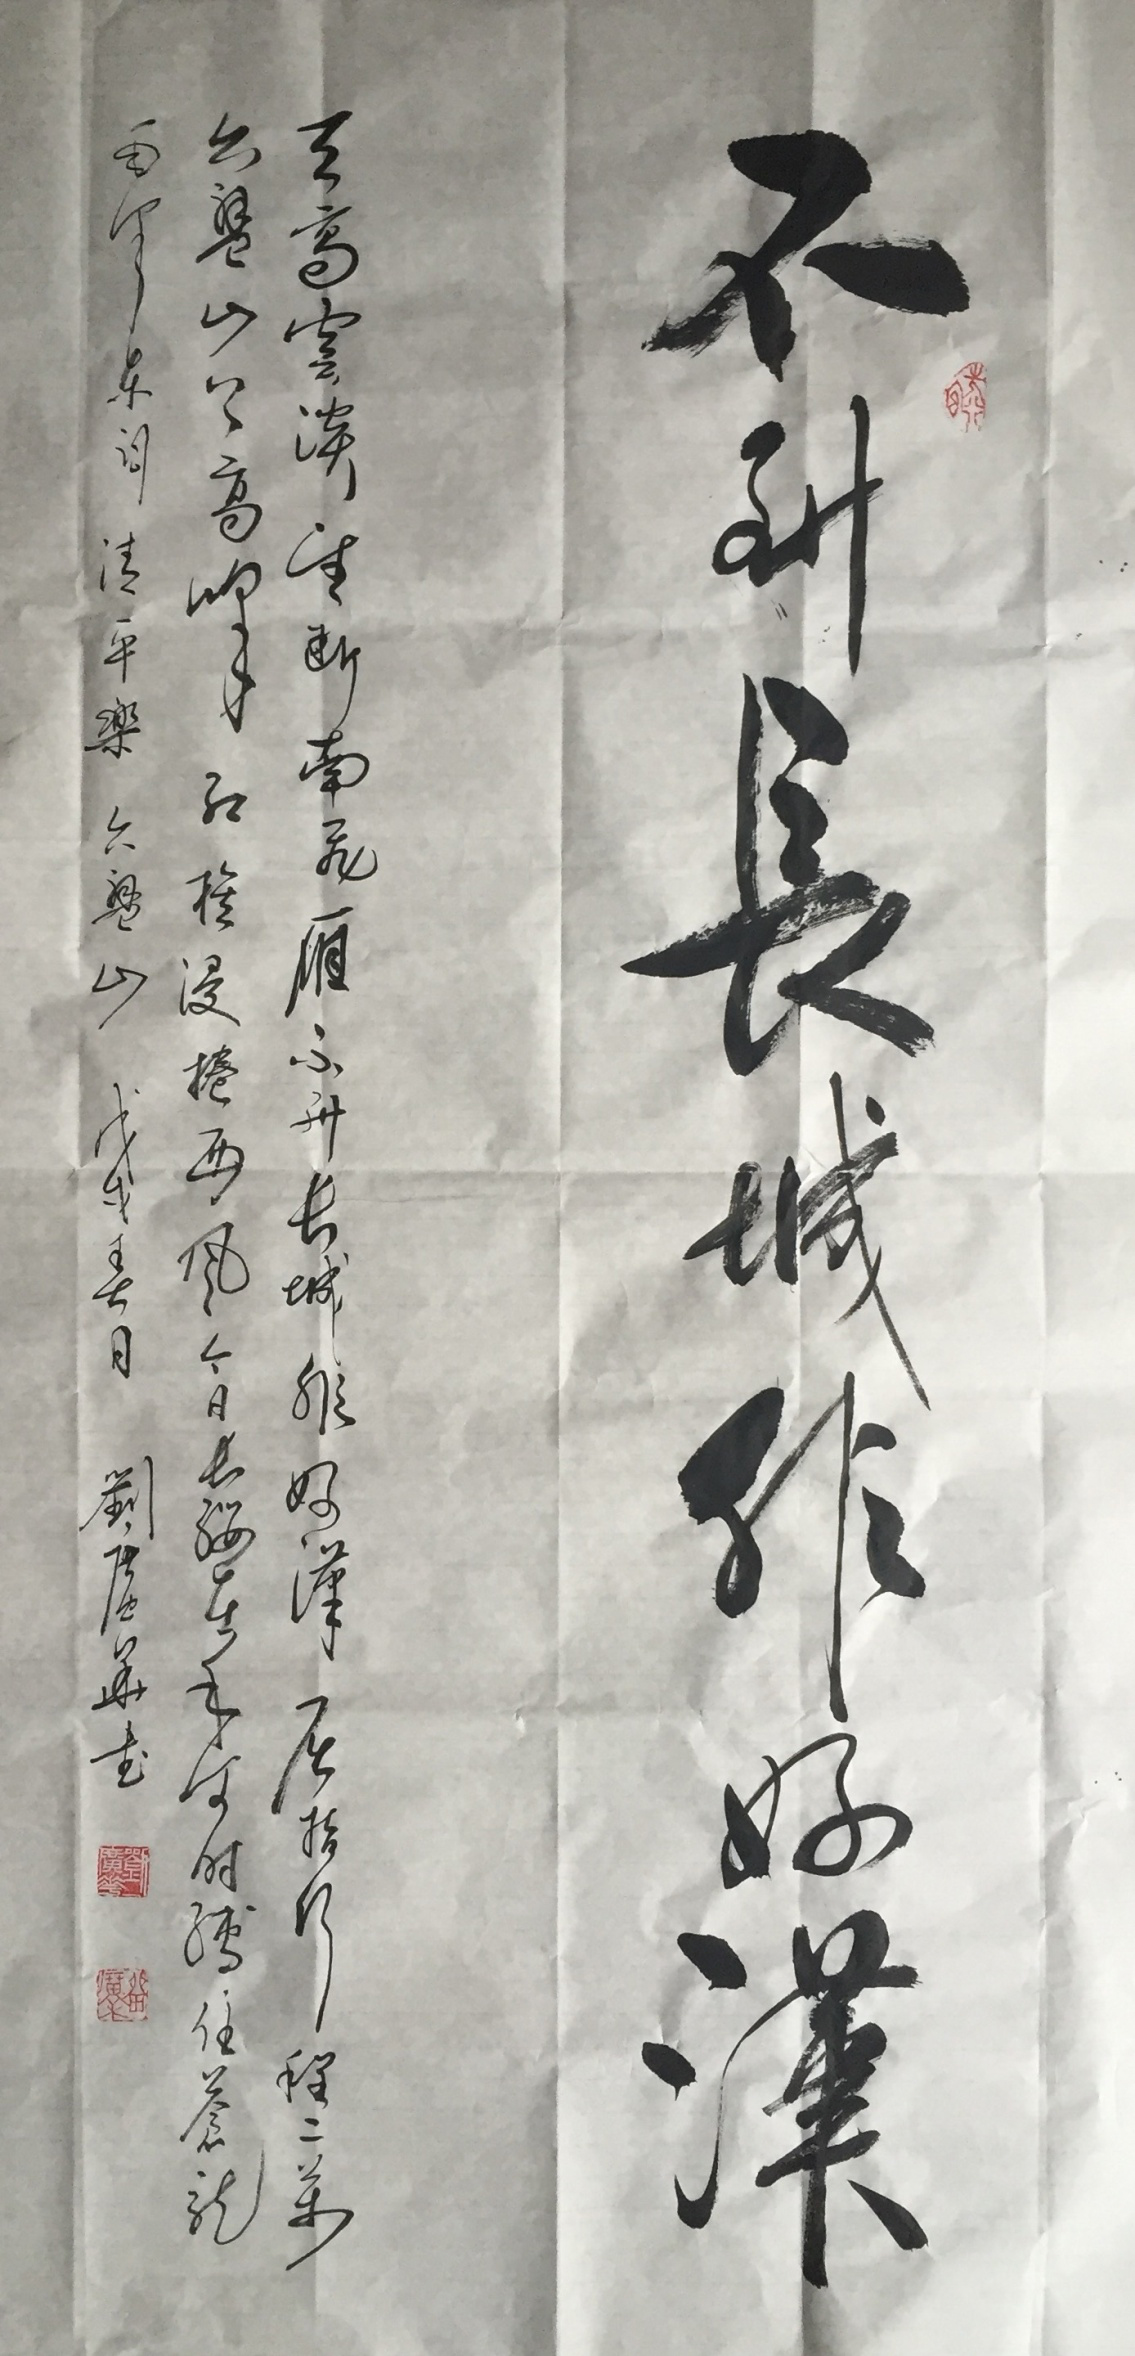 不到長城非好漢
天高雲淡望斷南飛雁不到长城非好漢屈指行程二萬
六盤山上高峰紅旗漫捲西風今日长纓在手何时縛住蒼龍
毛澤東詞清平樂六盤山戊戌春日劉廣華書
劉廣華